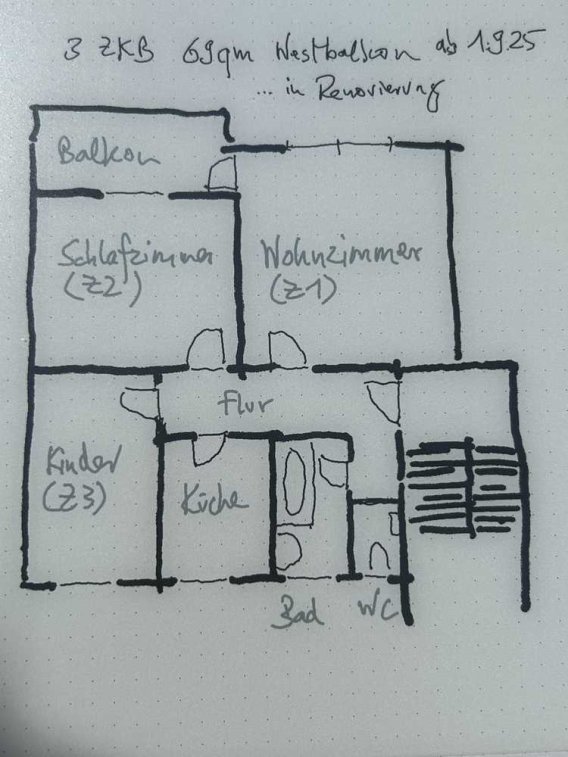 3 ZKB 69qm Westbalkon ab 1.9.25
... in Renovierung
Balkon
Schlafzimmer
(Z2)
Wohnzimmer
(Z1)
Flur
Kinder
(Z3)
Küche
Bad
WC